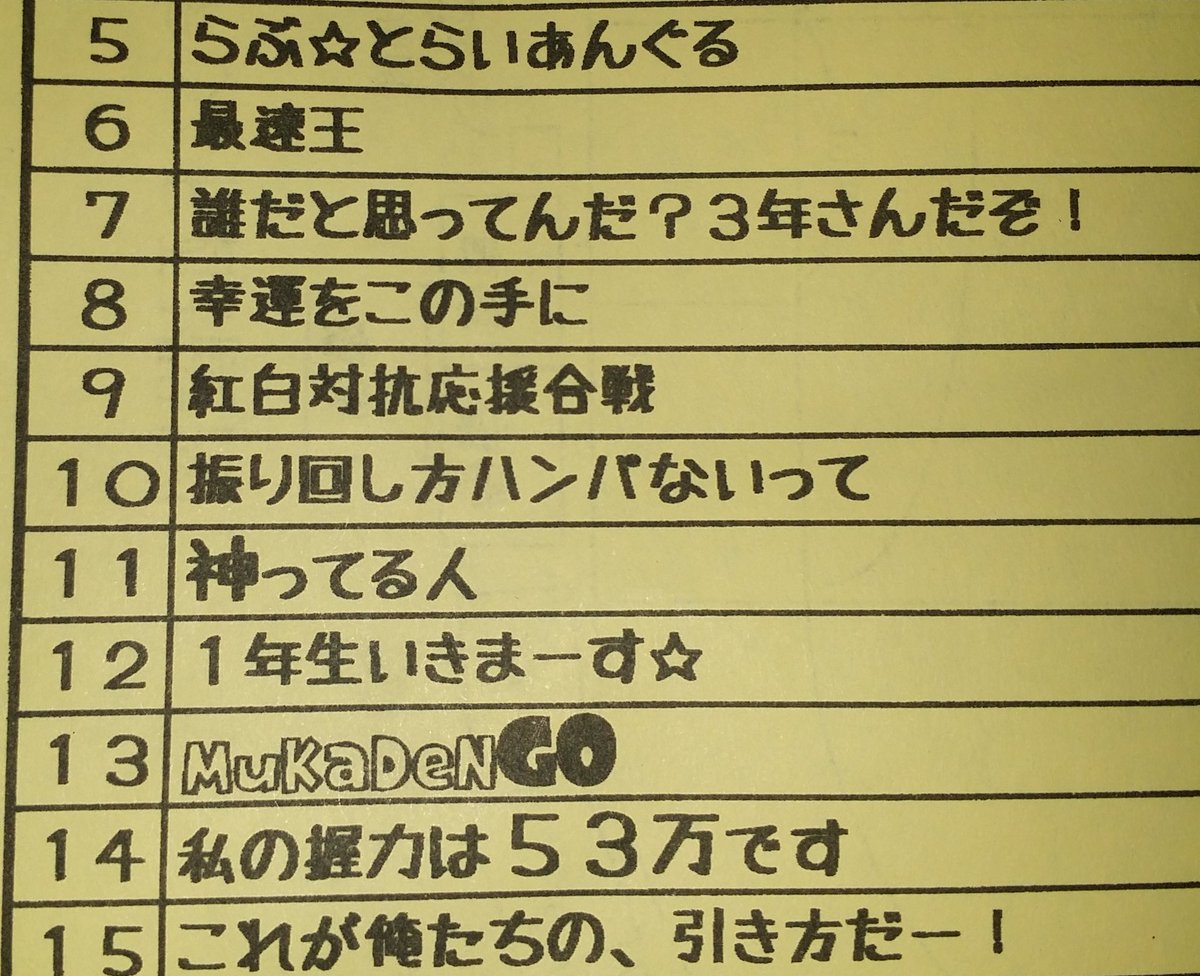 5 らぶ☆とらいあんぐる
6 最速王
7 誰だと思ってんだ？3年さんだぞ！
8 幸運をこの手に
9 紅白対抗応援合戦
10 振り回し方ハンパないって
11 神ってる人
12 1年生いきまーす☆
13 MuKaDeNGO
14 私の握力は53万です
15 これが俺たちの、引き方だー！